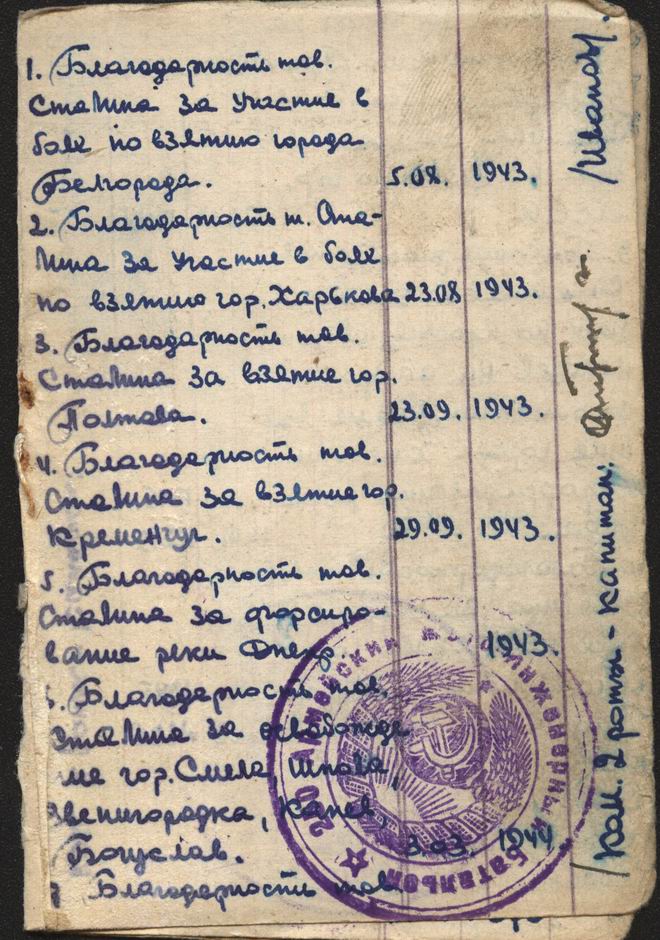 1. Благодарность тов.
Сталина за участие в
боях по взятию города
Белгорода. 5.08. 1943.
2. Благодарность т. Ста-
лина за участие в боях
по взятию гор. Харькова 23.08 1943.
3. Благодарность тов.
Сталина за взятие гор.
Полтава. 23.09. 1943.
4. Благодарность тов.
Сталина за взятие гор.
Кременчуг. 29.09. 1943.
5. Благодарность тов.
Сталина за форсиро-
вание реки Днепр. 1943.
Благодарность тов.
Сталина за освобожде
ние гор. Смела, Шпола,
Звенигородка, Канев,
Богуслав. 3.03. 1944
Благодарность тов.
Ком. 2 роты - капитан:
/Иванов/.
Армейский мотоинженерный
батальон